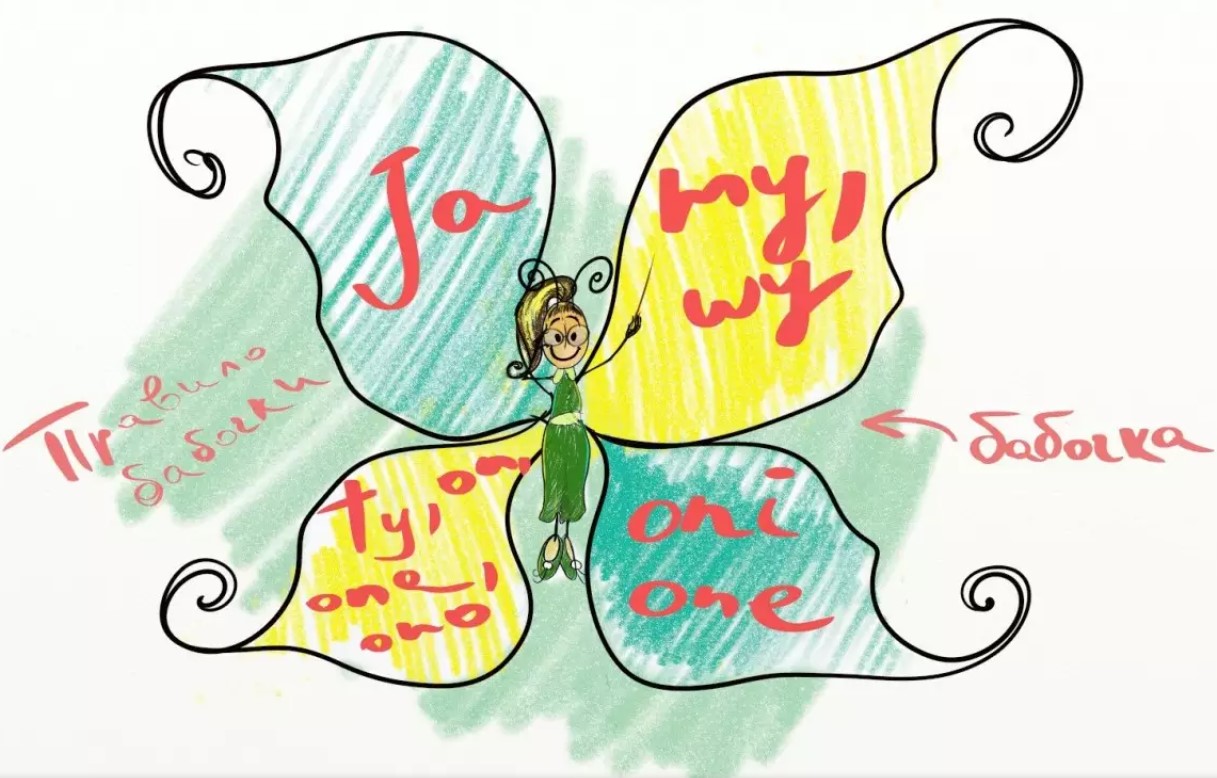 Ja
my,
wy
Правило
бабочки
бабочка
ty, on,
one,
ono
oni
one